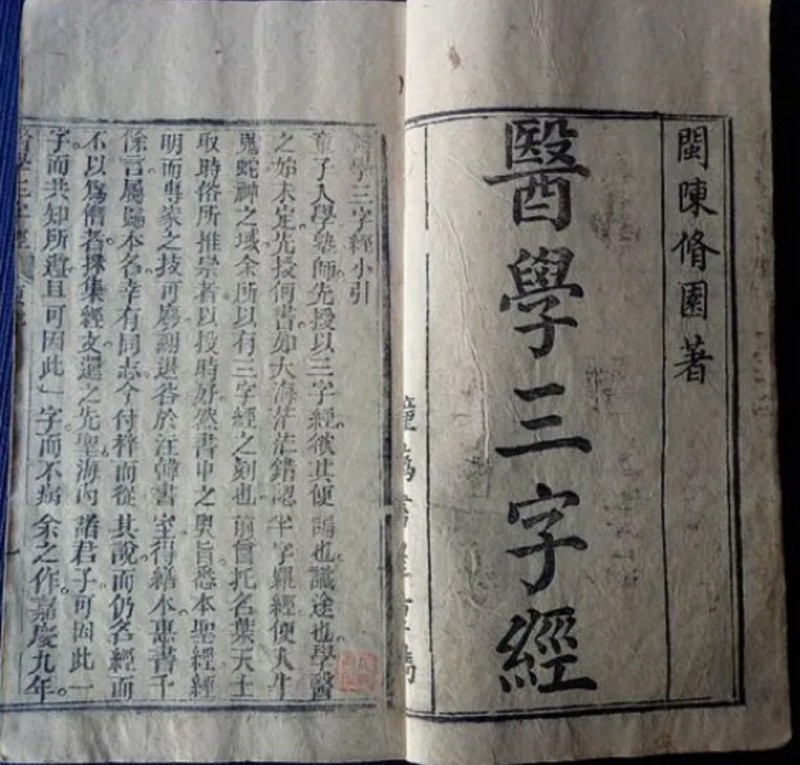 閩陳脩園著
醫學三字經
醫學三字經小引
童子入學塾師先授以三字經欲其便誦也識途也學醫
之始未定先授何書如大海茫茫錯認半字羅經便入牛
鬼蛇神之域余所以有三字經之刻也前曾托名葉天士
取時俗所推崇者以投時好然書中之奧旨悉本聖經經
明而專家之技可廢謝退谷於注韓書室得繕本惠書千
餘言屬歸本名幸有同志今付梓而從其說而仍名經而
不以為僭者採集經文還之先聖海內諸君子可因此一
字而共知所遵且可因此一字而不病余之作嘉慶九年
醫學三字經